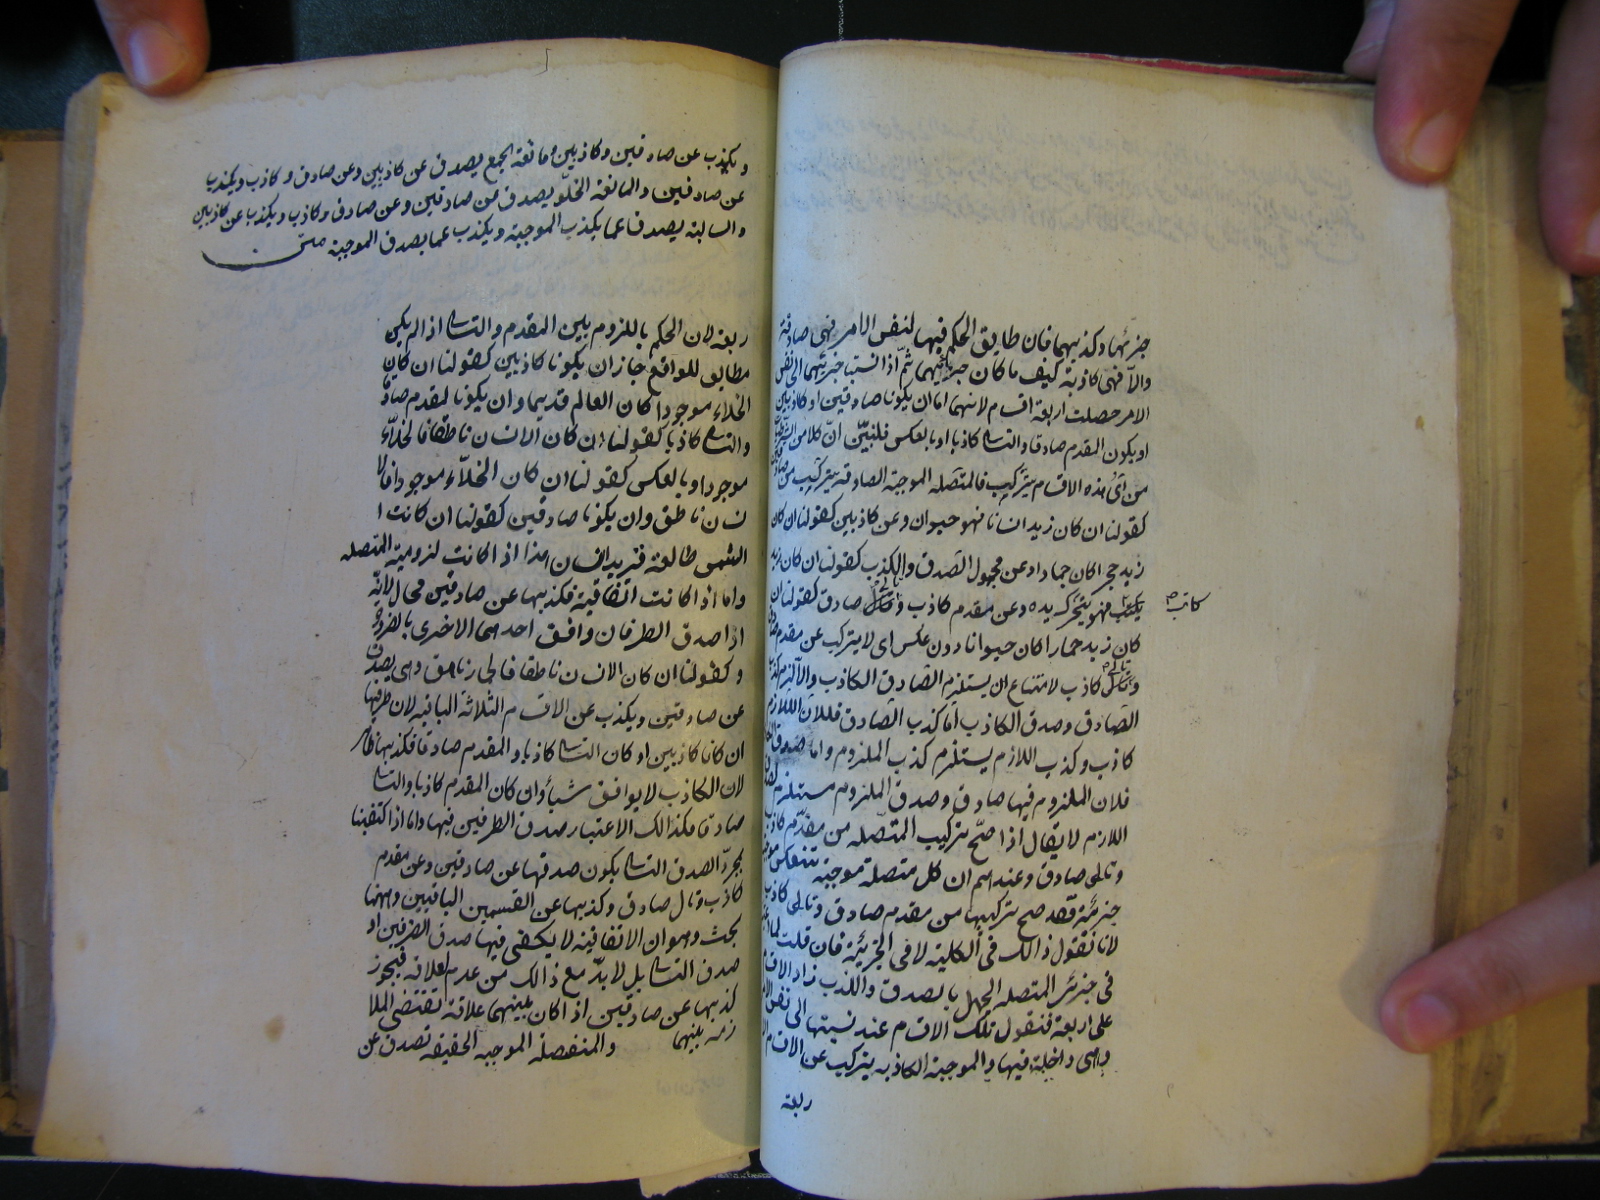 جزئيهما وكذبيهما فان طابق الحكم فيها لنفس الامر فهى صادقة
والا فهى كاذبة كيف ما كان جزئيهما ثم اذا نسبتا جزئيهما الى نفس
الامر حصلت اربعة اقسام لانهما اما ان يكونا صادقين او كاذبين
او يكون المقدم صادقا والتالى كاذبا او بالعكس فلنبين ان كلا من
من اى هذه الاقسام يتركب فالمتصله الموجبة الصادقة يتركب من
كقولنا ان كان زيد انسانا فهو حيوان وعن كاذبين كقولنا ان كان
زيد حجرا كان جمادا وعن مجهول الصدق والكذب كقولنا ان كان زيد
يكتب فهو يتحرك يده وعن مقدم كاذب وتالى صادق كقولنا ان
كاتب
كان زيد حمارا كان حيوانا دون عكس اى لا يتركب عن مقدم صادق
وتالى كاذب لامتناع ان يستلزم الصادق الكاذب والا لزم كذب
الصادق وصدق الكاذب اما كذب الصادق فلان اللازم
كاذب وكذب اللازم يستلزم كذب الملزوم واما صدق
فلان الملزوم فيها صادق وصدق الملزوم مستلزم
اللازم لا يقال اذا صح تركيب المتصله من مقدم كاذب
وتالى صادق وعندهم ان كل متصلة موجبة تنعكس موجبة
جزئية فقد صح تركيبها من مقدم صادق وتالى كاذب
لانا نقول ذالك فى الكلية لا فى الجزئية فان قلت لما
فى جزئى المتصله الجهل بالصدق والكذب زاد الاقسام
على اربعة فنقول تلك الاقسام عند نسبتها الى نفس الامر
وهى داخلة فيها والموجبة الكاذبه يتركب عن الاقسام
ربعة
ويكذب عن صادقين وكاذبين ومانعة الجمع يصدق عن كاذبين وعن صادق وكاذب ويكذب
عن صادقين والمانعة الخلو يصدق عن صادقين وعن صادق وكاذب ويكذب عن كاذبين
والسالبة يصدق عما يكذب الموجبة ويكذب عما يصدق الموجبة متن
ربعة لان الحكم باللزوم بين المقدم والتالى اذا لم يكن
مطابق للواقع جاز ان يكونا كاذبين كقولنا ان كان
الخلاء موجودا كان العالم قديما وان يكونا لمقدم صادقا
والتالى كاذبا كقولنا ان كان الانسان ناطقا فالخلاء
موجود او بالعكس كقولنا ان كان الخلاء موجودا فالا
نسان ناطق وان يكونا صادقين كقولنا ان كانت ا
الشمس طالعة فزيد انسان هذا اذا كانت لزومية المتصله
واما اذا كانت اتفاقية فكذبها عن صادقين محال لانه
اذا صدق الطرفان وافق احدهما الاخرى بالضرورة
وكقولنا ان كان الانسان ناطقا فالحمار ناهق وهى يصدق
عن صادقين ويكذب عن الاقسام الثلاثة الباقيه لان طرفيها
ان كانا كاذبين او كان التالى كاذبا والمقدم صادقا فكذبها ظاهر
لان الكاذب لا يوافق شيأ وان كان المقدم كاذبا والتالى
صادقا فكذالك الاعتبار صدق الطرفين فيها واما اذا اكتفينا
بمجرد الصدق التالى يكون صدقها عن صادقين وعن مقدم
كاذب وتال صادق وكذبها عن القسمين الباقيين وههنا
بحث وهو ان الاتفاقيه لا يكفى فيها صدق الطرفين او
صدق التالى بل لا بد مع ذالك من عدم لعلاقه فيجوز
كذبها عن صادقين اذا كان بينهما علاقة تقتضى الملا
زمه بينهما والمنفصله الموجبه الحقيقه تصدق عن